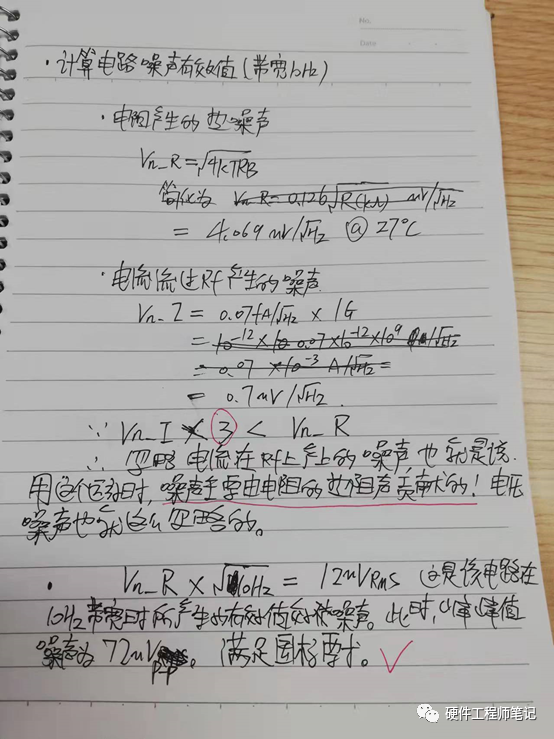 No.
Date
·计算电路噪声有效值(带宽10Hz)
·电阻产生的热噪声
Vn_R=√4KTRB
简化为 Vn-R=0.126√R(kΩ) uV/√Hz
= 4.069 uV/√Hz @ 27℃
·电流流过Rf产生的噪声
Vn_I = 0.07fA/√Hz × 1G
= 10⁻¹² × 10 0.07×10⁻¹²×10⁹ /√Hz
= 0.07 ×10⁻³ A/√Hz =
= 0.7uV/√Hz.
∵ Vn_I × 3 < Vn_R
∴ 忽略电流在Rf上产生的噪声,也就是该
用这个运放时,噪声主要由电阻的热噪声贡献的!电压
噪声也能这么忽略的。
· Vn_R × √10Hz = 12uVRms 这是该电路在
10Hz带宽时所产生的有效值 噪声。此时,峰峰值
噪声为72uVp-p。满足国标要求。✓
硬件工程师笔记